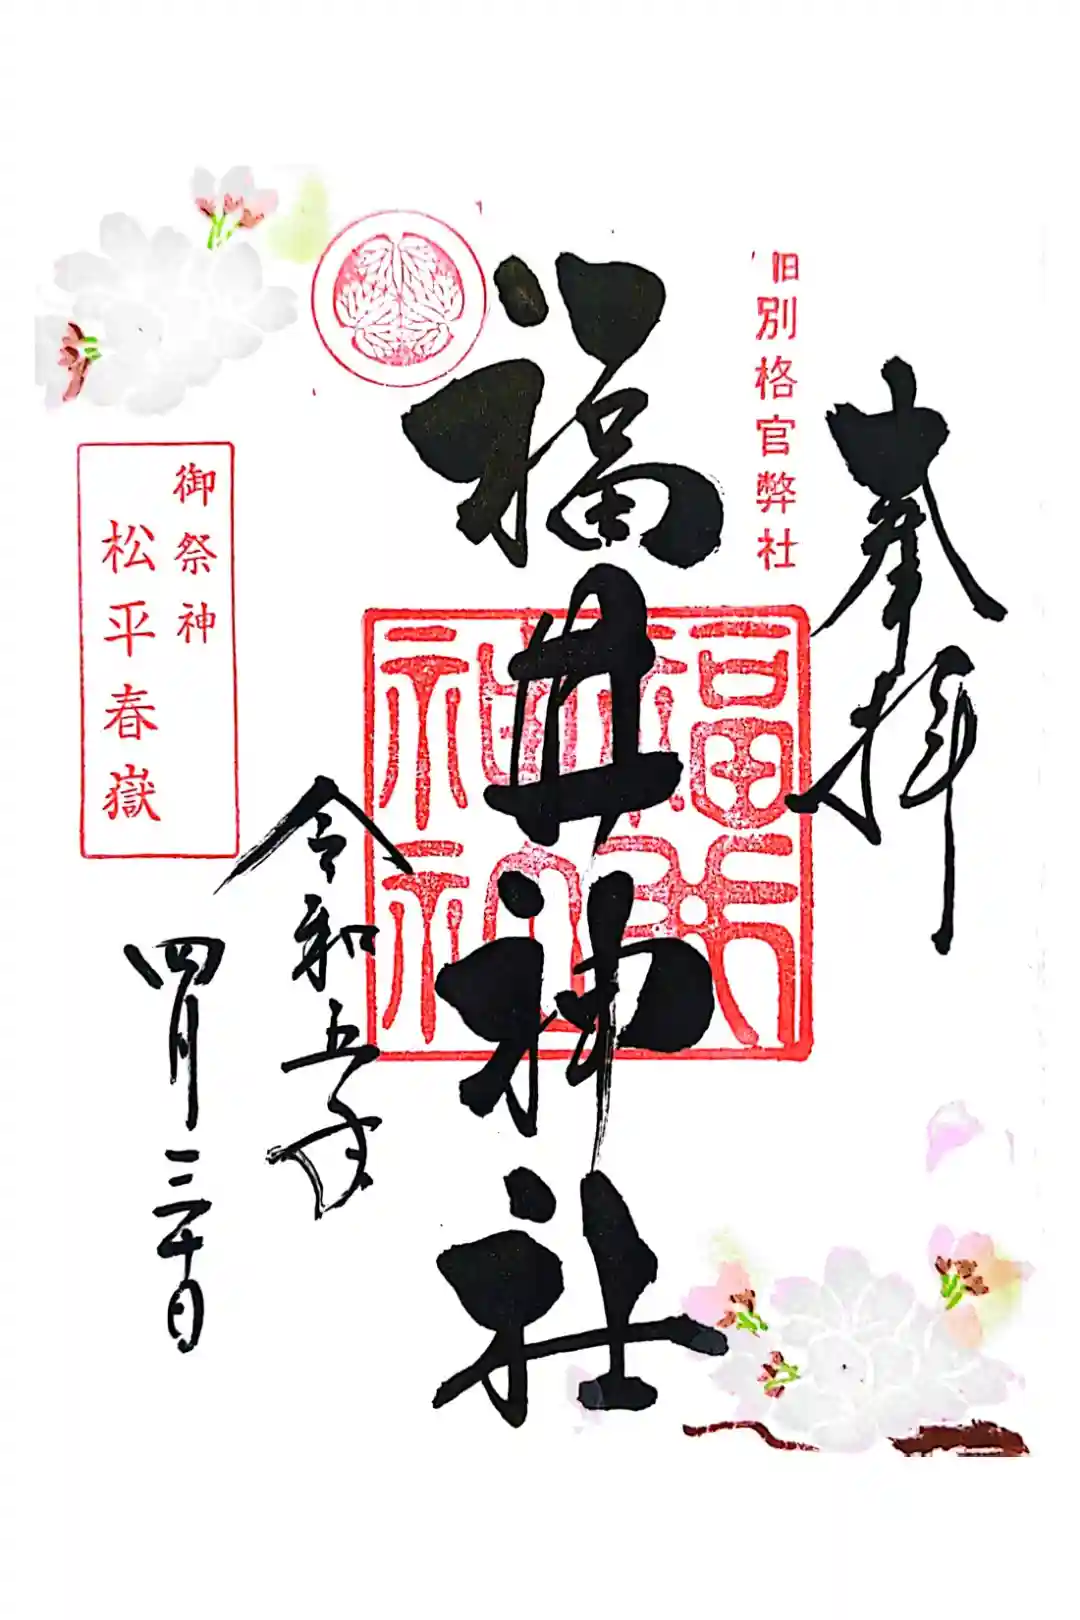 奉拝
旧別格官弊社
福井神社
福井神社
令和五年
四月三十日
御祭神
松平春嶽